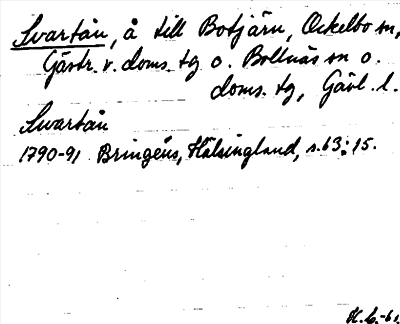 Svartån, å till Botjärn, Ockelbo sn,
Gästr. v. doms. tg o. Bollnäs sn o.
doms. tg, Gävl. l.
Svartån
1790-91 Bringéus, Hälsingland, s. 63:15.
H.C.-61.